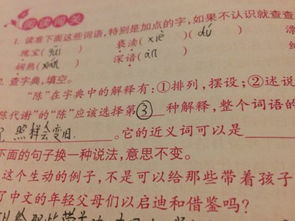 阅读闯关
1. 读准下面这些词语,特别是加点的字,如果不认识就查查
瑰宝( ) 亵渎(xiè)(dú)
娴熟( ) 深谙(ān)
2. 查字典,填空。
“陈”在字典中的解释有:①排列,摆设;②述说
陈代谢”的“陈”应该选择第③种解释,整个词语的
。它的近义词可以是
下面的句子换一种说法,意思不变。
这个生动的例子,不是可以给那些带着孩子
了中文的年轻父母们以启迪和借鉴吗?